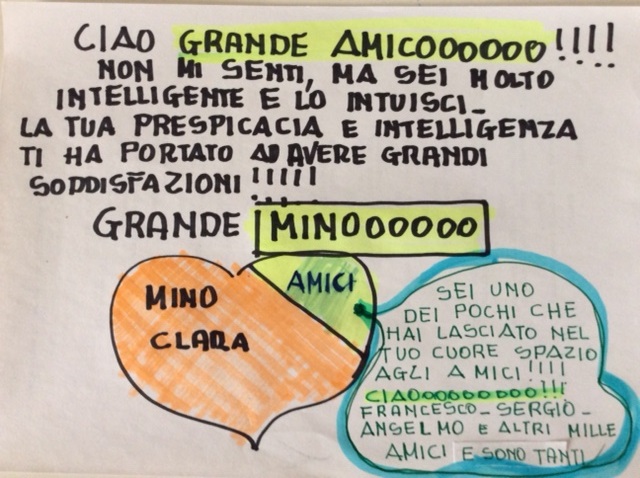 CIAO GRANDE AMICOOOOOO!!!!
NON MI SENTI, MA SEI MOLTO
INTELLIGENTE E LO INTUISCI_
LA TUA PRESPICACIA E INTELLIGENZA
TI HA PORTATO AD AVERE GRANDI
SODDISFAZIONI!!!!!
GRANDE MINOOOOOO
MINO
CLARA
AMICI
SEI UNO
DEI POCHI CHE
HAI LASCIATO NEL
TUO CUORE SPAZIO
AGLI AMICI!!!!
CIAOOOOOOOOO!!!
FRANCESCO_ SERGIO_
ANSELMO E ALTRI MILLE
AMICI E SONO TANTI